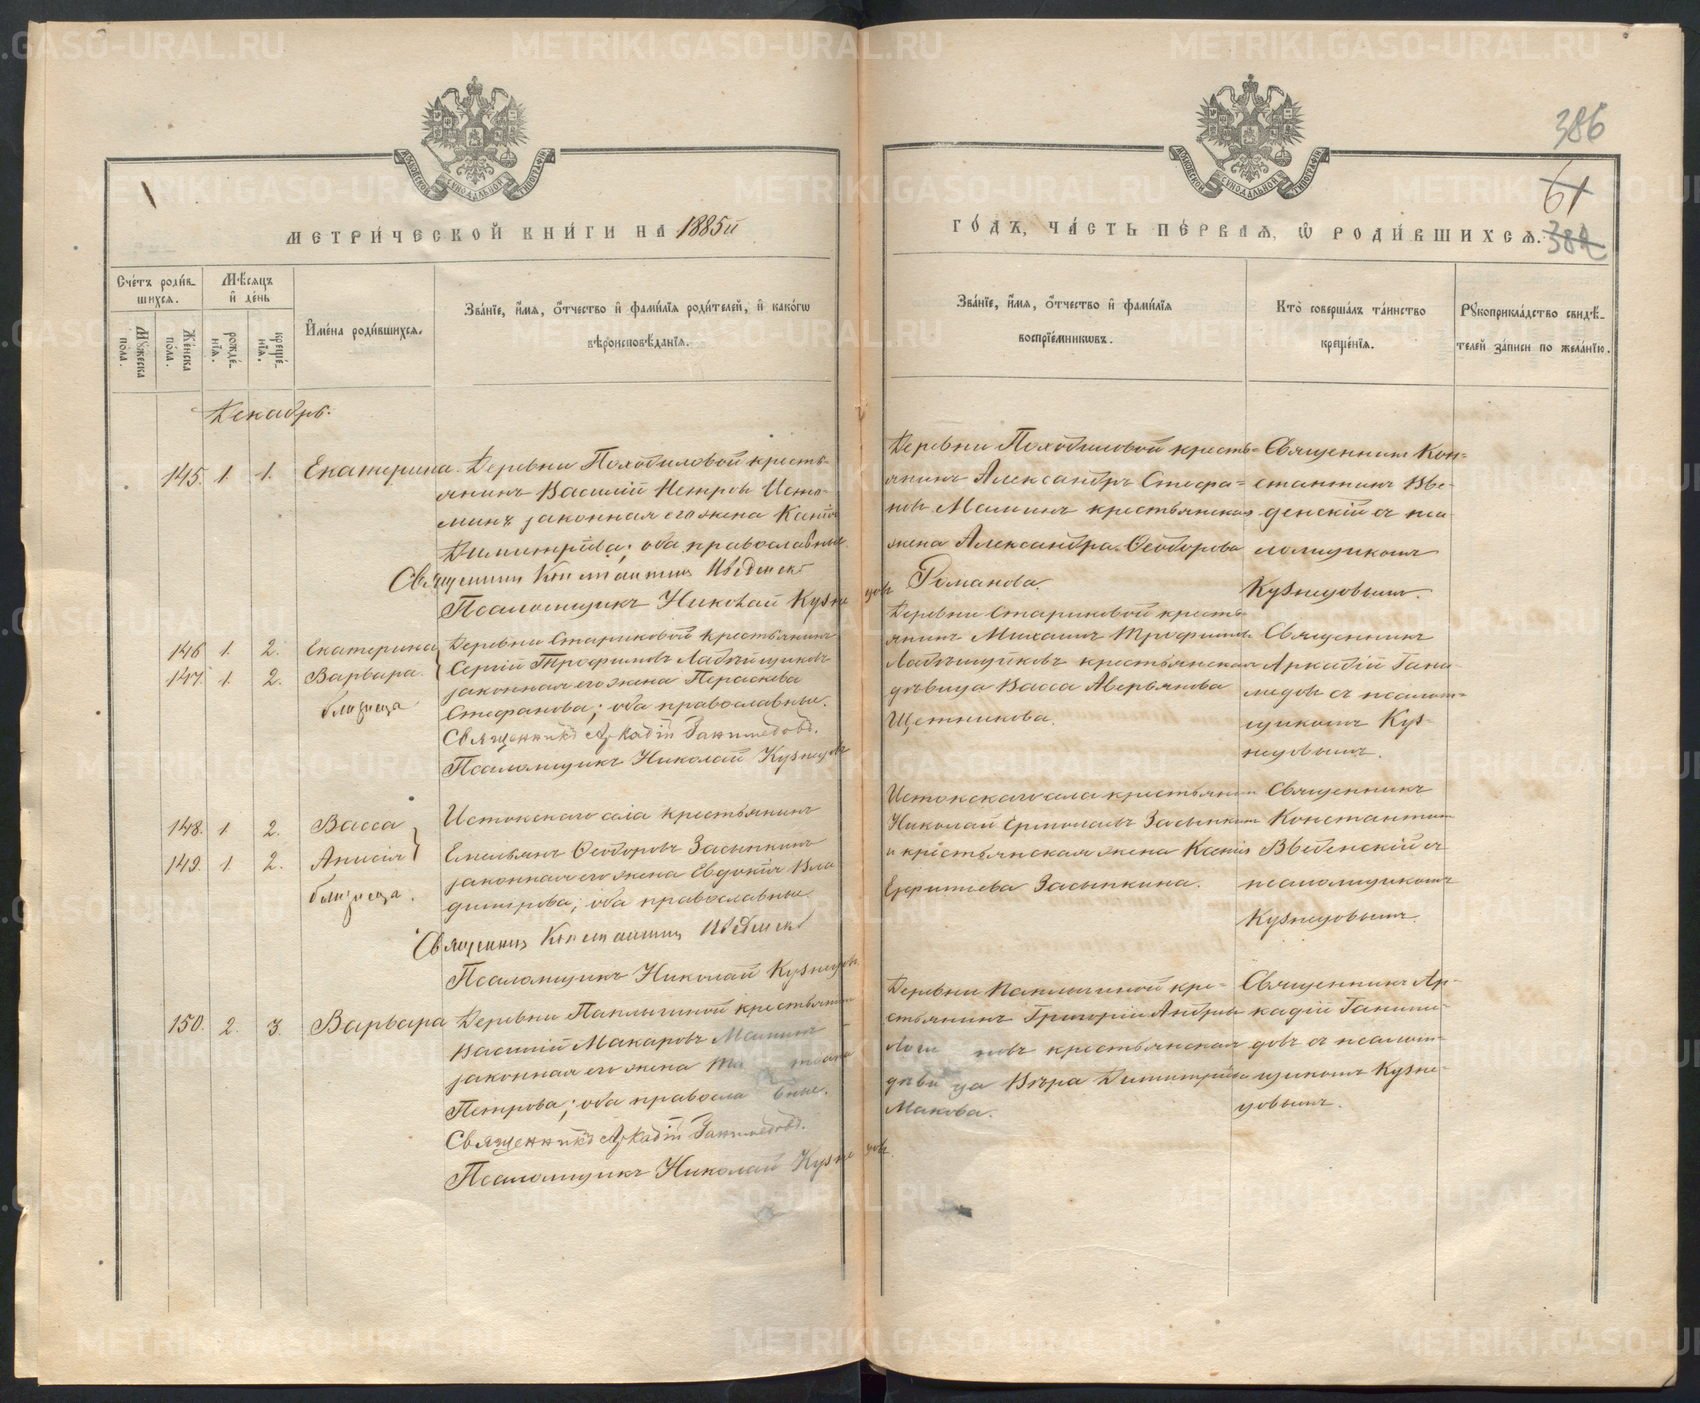 386
61
382
МОСКОВСКОЙ СѴНОДАЛЬНОЙ ТИПОГРАФІИ
МОСКОВСКОЙ СѴНОДАЛЬНОЙ ТИПОГРАФІИ
МЕТРИ́ЧЕСКОЙ КНИ́ГИ НА 1885й
ГО́ДЪ, ЧА́СТЬ ПЕ́РВАЯ, Ѡ РОДИ́ВШИХСЯ.
Сче́тъ роди́в-
шихся.
Мѣ́сяцъ
и҆ де́нь
Му́жеска
по́ла.
Же́нска
по́ла.
рожде́-
нїя.
креще́-
нїя.
И҆мена̀ роди́вшихся.
Зва́нїе, и҆́мя, ѻ҆́тчество и҆ фами́лїя роди́телей, и҆ како́гѡ
вѣроисповѣ́данїя.
Зва́нїе, и҆́мя, ѻ҆́тчество и҆ фами́лїя
воспрїе́мникѡвъ.
Кто̀ соверша́лъ та́инство
креще́нїя.
Рꙋкоприкла́дство свидѣ́-
телей за́писи по жела́нїю.
Декабрь.
145. 1. 1. Екатерина.
Деревни Походиловой кресть-
янинъ Василій Петровъ Исто-
минъ законная его жена Ксенія
Димитріева; оба православные.
Священникъ Константинъ Введенскій
Псаломщикъ Николай Кузнецовъ
Деревни Походиловой кресть-
янинъ Александръ Стефа-
новъ Маминъ крестьянская
жена Александра Ѳеодорова
Романова.
Священникъ Кон-
стантинъ Вве-
денскій съ пса-
ломщикомъ
Кузнецовымъ.
146 1. 2. Екатерина
147 1. 2. Варвара.
близнеца
Деревни Стариковой крестьянинъ
Сергій Трофимовъ
законная его жена Параскева
Стефанова; оба православные.
Священникъ Аркадій Ганимедовъ.
Псаломщикъ Николай Кузнецовъ
Деревни Стариковой кресть-
янинъ Михаилъ Трофимовъ
крестьянская
дѣвица Васса Аверьянова
Щетникова.
Священникъ
Аркадій Гани-
медовъ съ псалом-
щикомъ Куз-
нецовымъ.
148. 1 2. Васса
149. 1 2. Анисія
близнеца.
Истокскаго села крестьянинъ
Емельянъ Ѳеодоровъ Засыпкинъ
законная его жена Евдокія Вла-
димірова; оба православные.
Священникъ Константинъ Введенскій
Псаломщикъ Николай Кузнецовъ
Истокскаго села крестьянинъ
Николай Ермолаевъ Засыпкинъ
и крестьянская жена Ксенія
Ефимиева Засыпкина.
Священникъ
Константинъ
Введенскій съ
псаломщикомъ
Кузнецовымъ.
150. 2. 3. Варвара
Деревни Паклычиной крестьянинъ
Василій Макаровъ Маминъ
законная его жена
Петрова; оба православные.
Священникъ Аркадій Ганимедовъ.
Псаломщикъ Николай Кузнецовъ.
Деревни Паклычиной кре-
стьянинъ Григорій Андреевъ
крестьянская
дѣвица Вѣра Димитріева
Макова.
Священникъ Ар-
кадій Ганиме-
довъ съ псалом-
щикомъ Кузне-
цовымъ.
METRIKI.GASO-URAL.RU